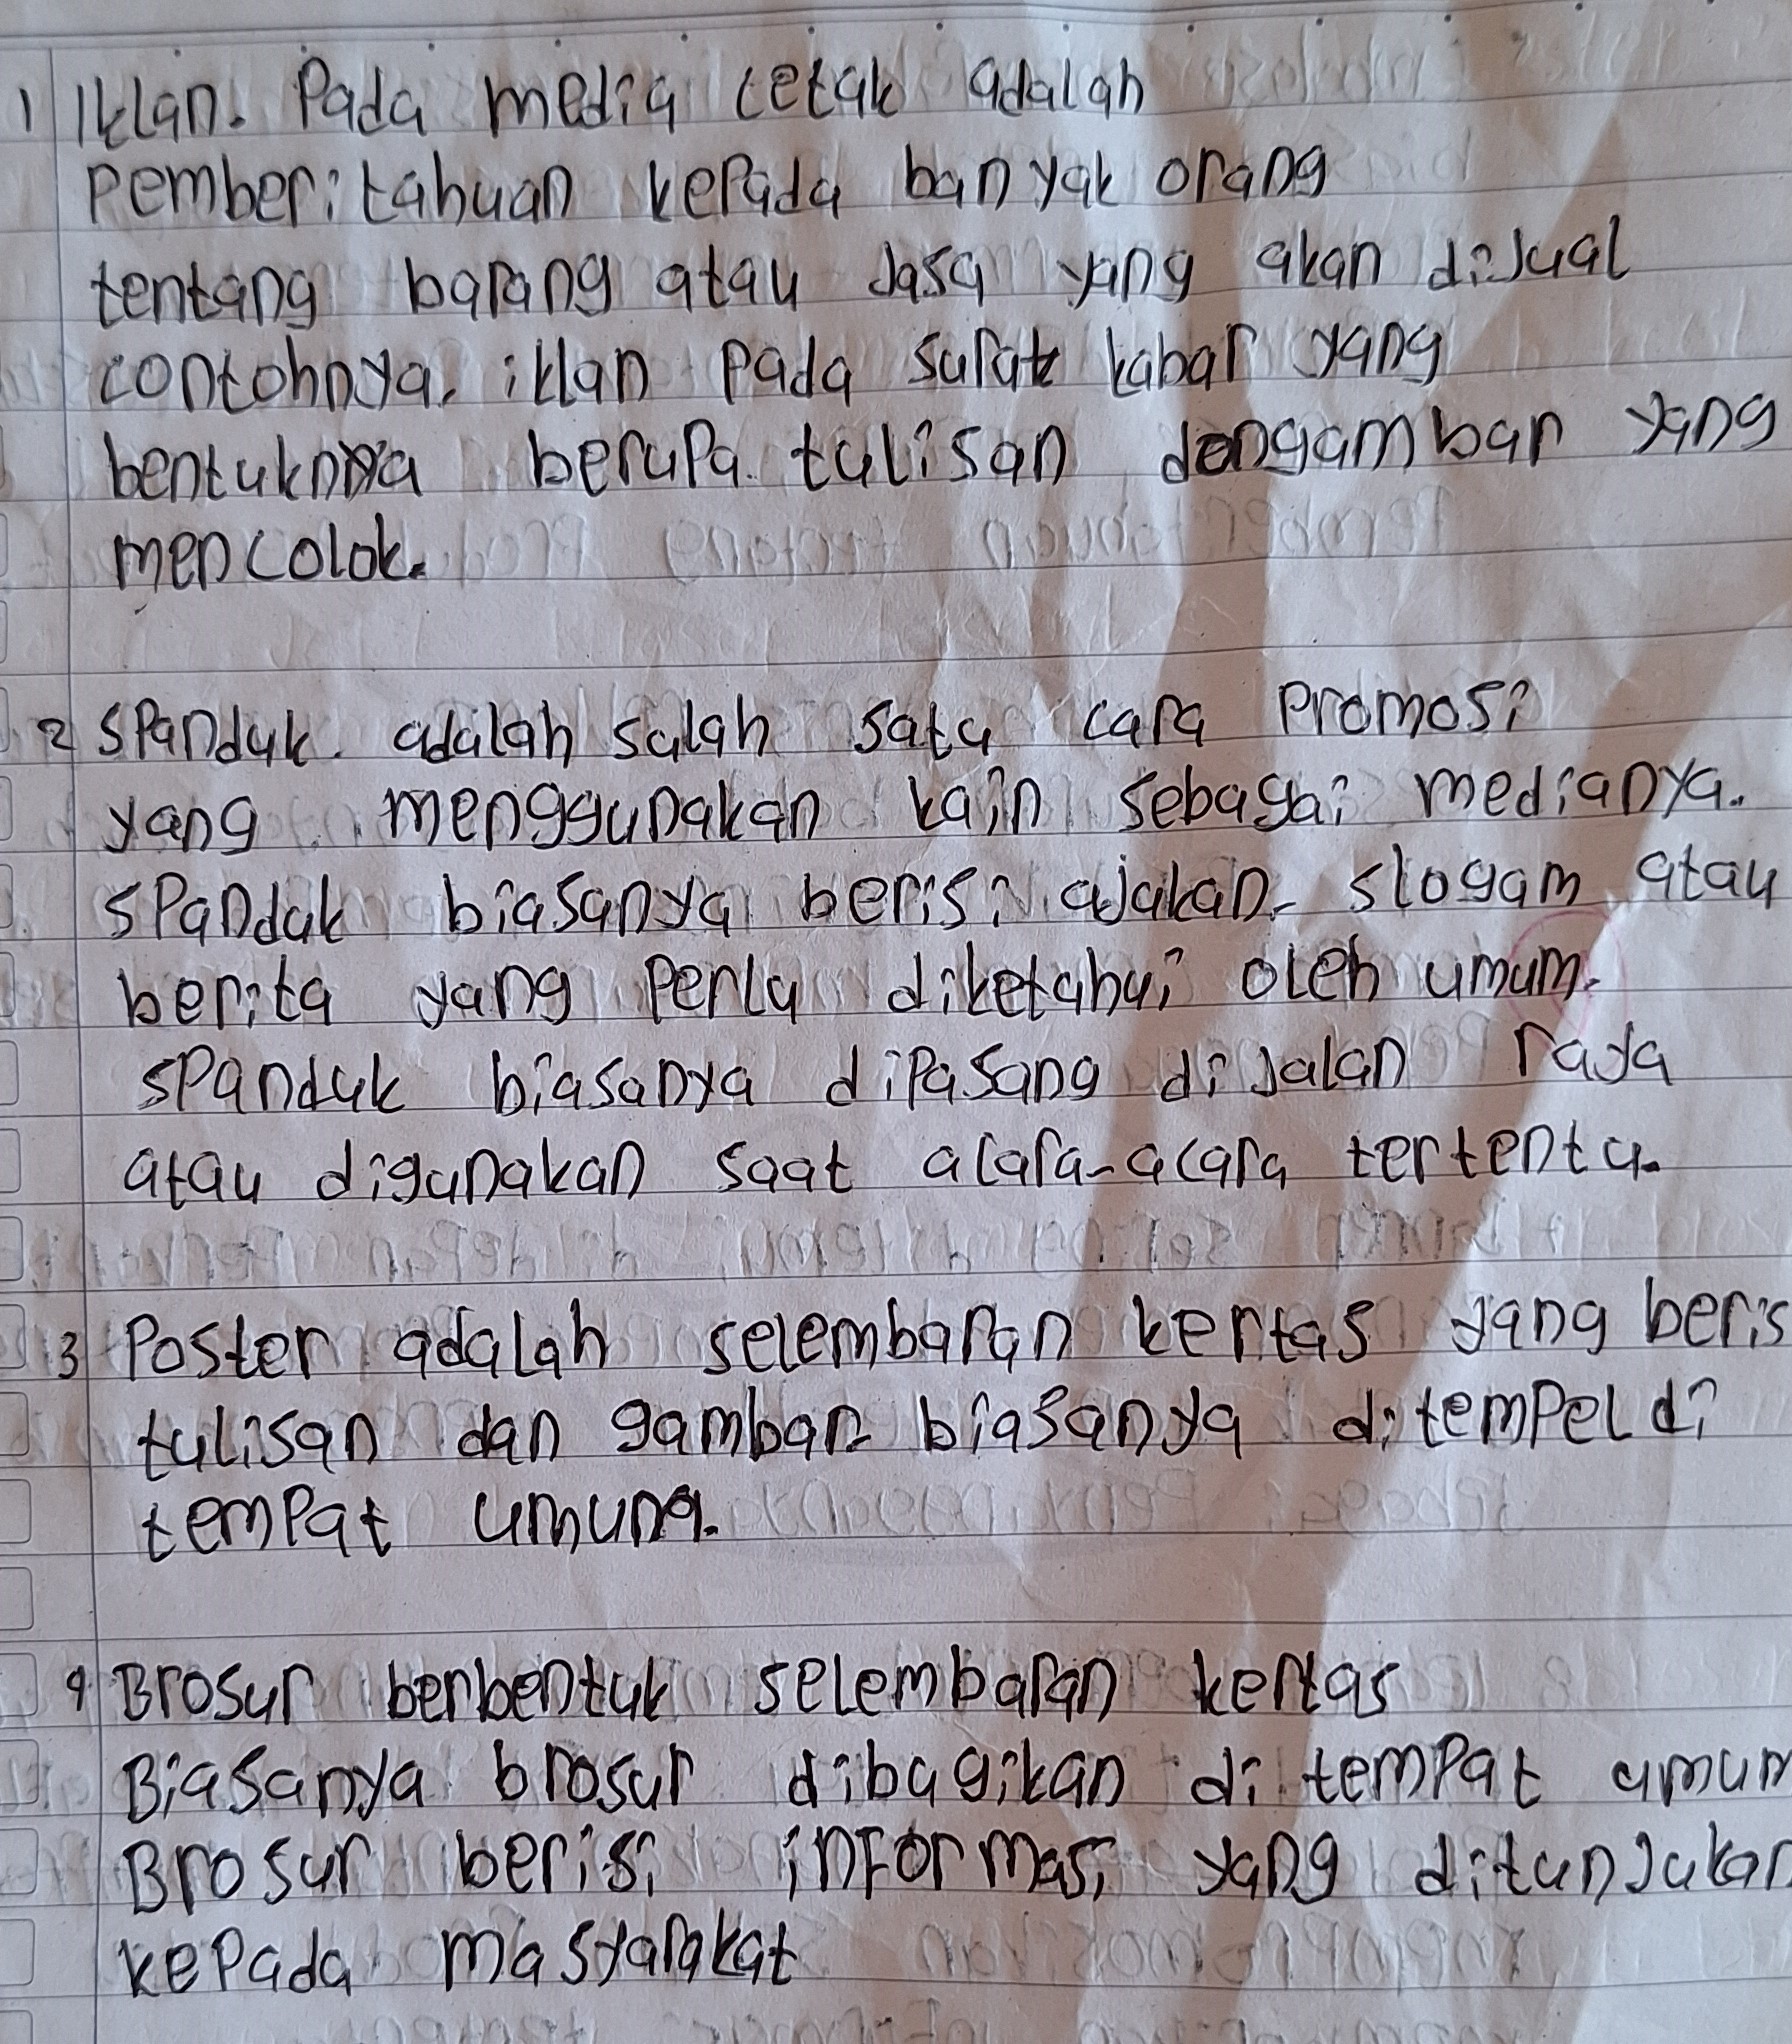 1 Iklan. Pada media cetak adalah
Pemberitahuan kepada banyak orang
tentang barang atau Jasa yang akan diJual
contohnya, iklan Pada surat kabar yang
bentuknya berupa tulisan dengambar yang
mencolok.
2 SPanduk. adalah salah satu cara Promosi
yang menggunakan kain sebagai medianya.
SPanduk biasanya berisi aJakan, slogam atau
berita yang Perlu diketahui oleh umum.
SPanduk biasanya diPasang di Jalan raya
atau digunakan saat acara-acara tertentu.
3 Poster adalah selembaran kertas yang beris
tulisan dan gambar biasanya ditemPel di
temPat umum.
4 Brosur berbentuk selembaran kertas
Biasanya brosur dibagikan di temPat umum
Brosur berisi inFormasi yang ditunJukan
kePada masyarakat